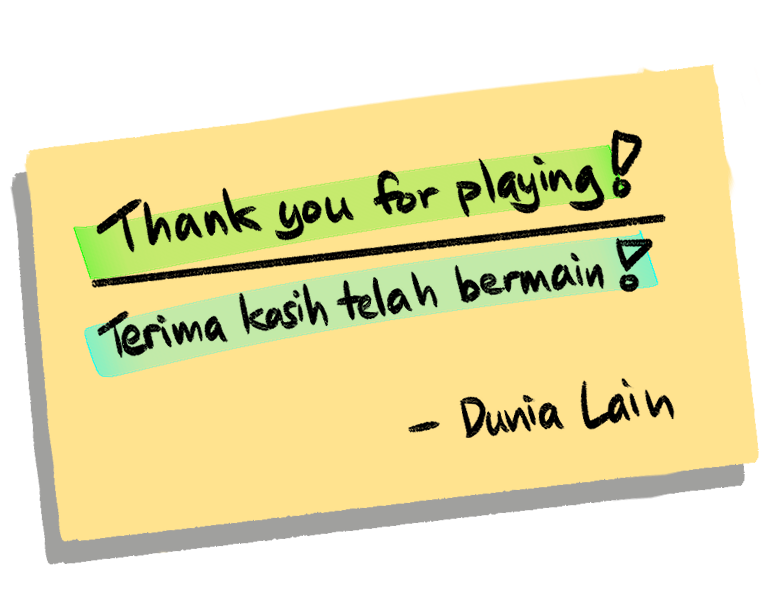 Thank you for playing!
Terima kasih telah bermain!
- Dunia Lain